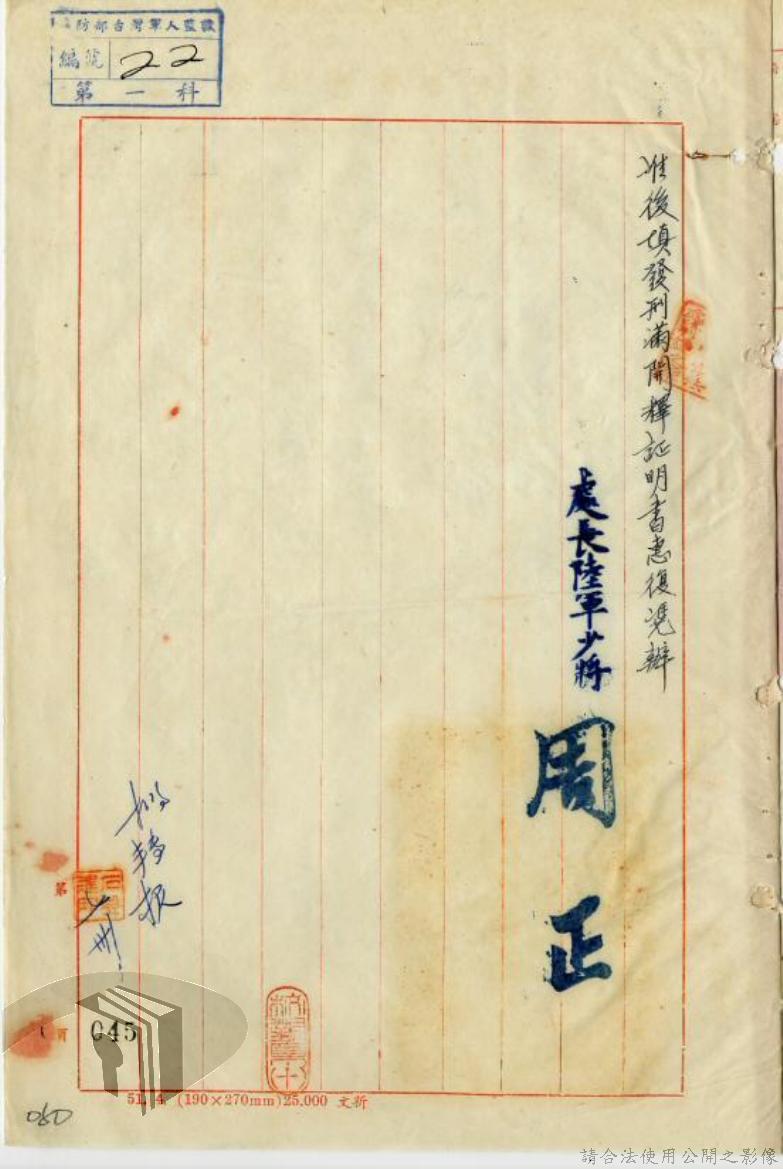 防部台灣軍人監獄
編號 22
第一科
准後填發刑滿開釋証明書惠復憑辦
處長陸軍少將
周正
第
頁
045
51. 4. (190×270mm)25,000 文新
060
請合法使用公開之影像